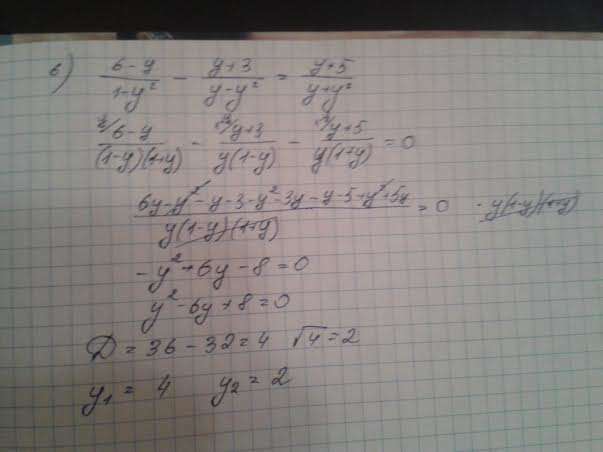 б) (6-y)/(1-y²) - (y+3)/(y-y²) = (y+5)/(y+y²)
y/ (6-y)/((1-y)(1+y)) - (y+3)/(y(1-y)) - (y+5)/(y(1+y)) = 0
(6y-y²-y-3-y²-3y-y-5+y²+5y)/(y(1-y)(1+y)) = 0 · y(1-y)(1+y)
-y²+6y-8=0
y²-6y+8=0
D = 36-32=4 √4=2
y₁ = 4 y₂ = 2